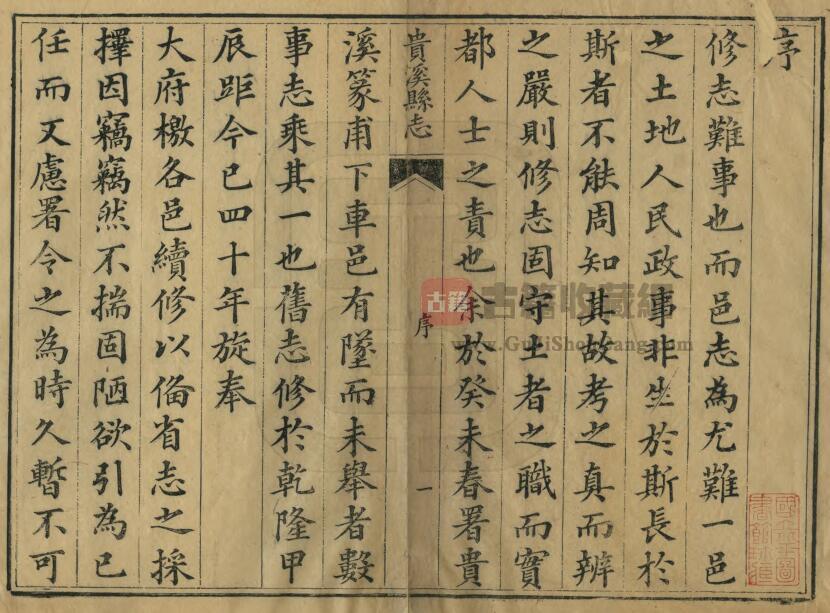 序
修志難事也而邑志為尤難一邑
之土地人民政事非生於斯長於
斯者不能周知其故考之真而辨
之嚴則修志固守土者之職而實
都人士之責也余於癸未春署貴
貴溪縣志
序
一
溪篆甫下車邑有墜而未舉者數
事志乘其一也舊志修於乾隆甲
辰距今已四十年旋奉
大府檄各邑續修以俻省志之採
擇因竊竊然不揣固陋欲引為已
任而又慮署令之為時久暫不可
古籍
古籍收藏網
www.GujiShoucang.com